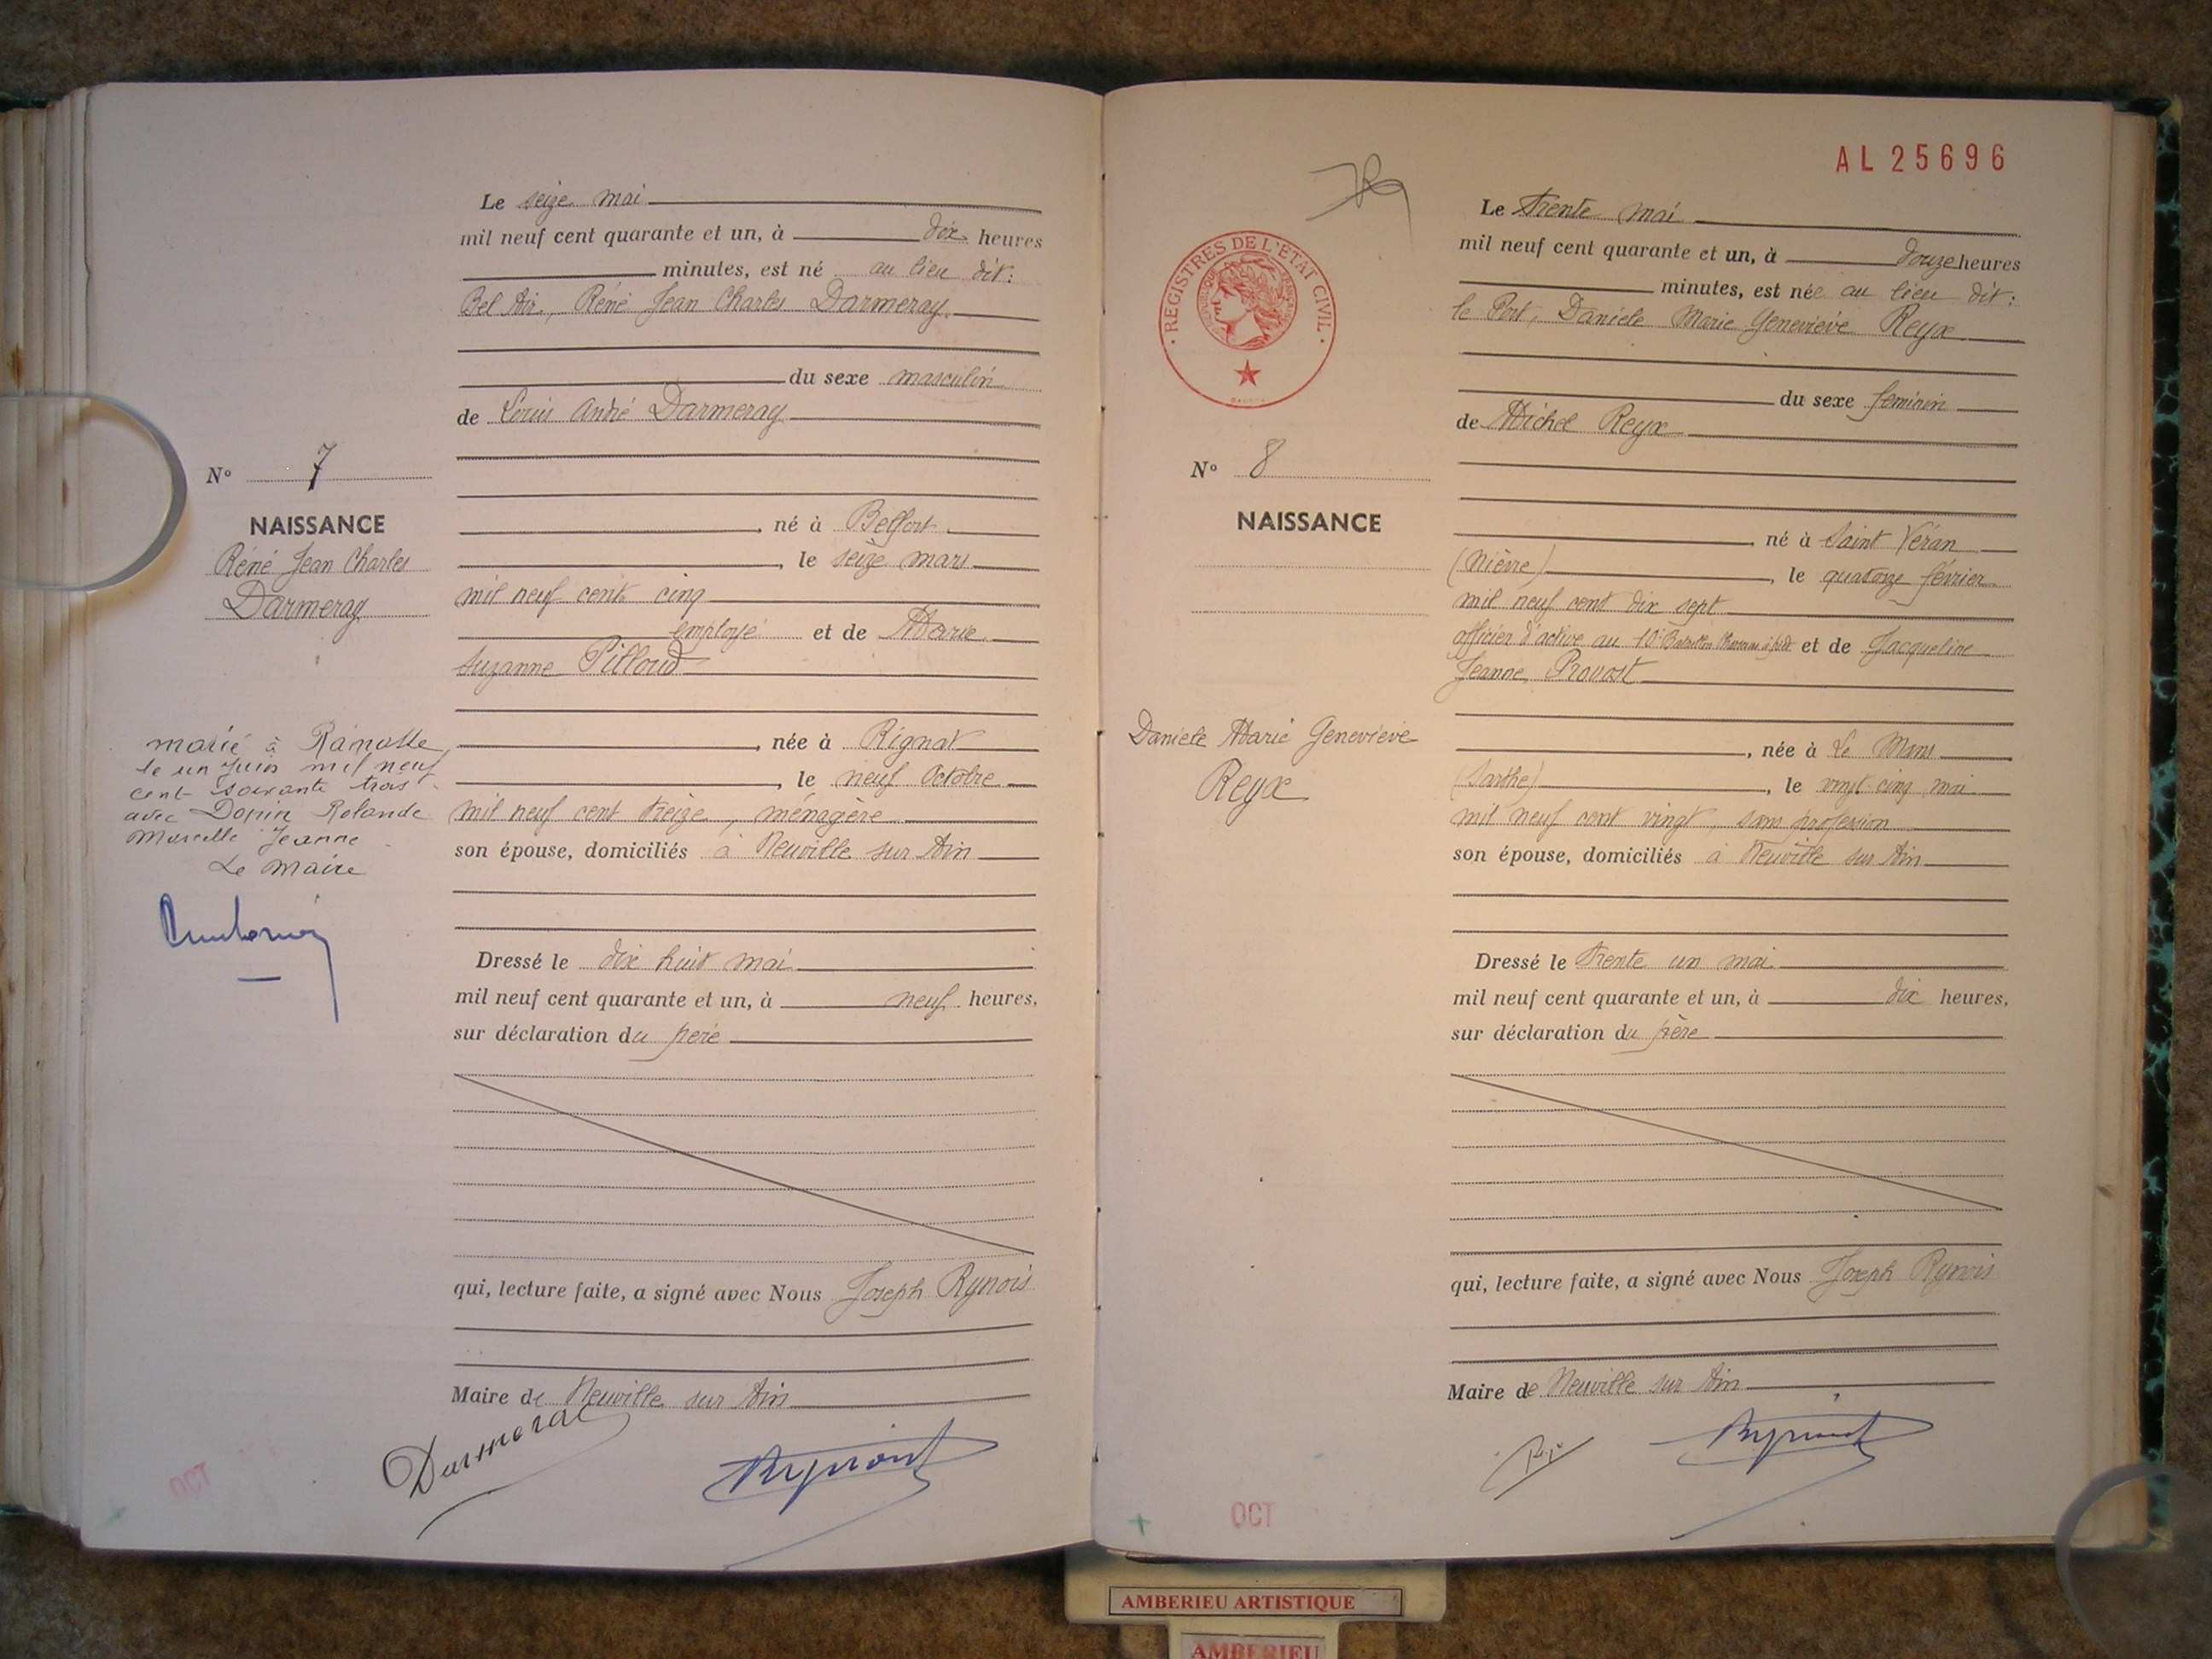 Le seize mai
mil neuf cent quarante et un, à dix heures
minutes, est né au lieu dit:
Bel Air, Réné Jean Charles Darmeray
du sexe masculin
de Louis André Darmeray
N° 7
NAISSANCE
Réné Jean Charles
Darmeray
né à Belfort
, le seize mars
mil neuf cent cinq
employé et de Marie
Suzanne Pilloud
marié à
le un juin mil neuf
cent soixante trois
avec Rolande
Marcelle Jeanne
Le Maire
, née à Rignat
, le neuf Octobre
mil neuf cent treize, ménagère
son épouse, domiciliés à Neuville sur Ain
Dressé le dix huit mai
mil neuf cent quarante et un, à neuf heures,
sur déclaration du père
qui, lecture faite, a signé avec Nous Joseph Rynois
Maire de Neuville sur Ain
Darmeray
OCT
AL25696
REGISTRES DE L'ÉTAT CIVIL
Le trente mai
mil neuf cent quarante et un, à douze heures
minutes, est née au lieu dit:
le Port, Danièle Marie Geneviève Reyx
du sexe féminin
de Michel Reyx
N° 8
NAISSANCE
Danièle Marie Geneviève
Reyx
né à Saint Véran
(Nièvre), le quatorze février
mil neuf cent dix sept
officier d'active au 10e Bataillon et de Jacqueline
Jeanne Provost
, née à Le Mans
(Sarthe), le vingt cinq mai
mil neuf cent vingt, sans profession
son épouse, domiciliés à Neuville sur Ain
Dressé le trente un mai
mil neuf cent quarante et un, à dix heures,
sur déclaration du père
qui, lecture faite, a signé avec Nous Joseph Rynois
Maire de Neuville sur Ain
OCT
AMBERIEU ARTISTIQUE
AMBERIEU